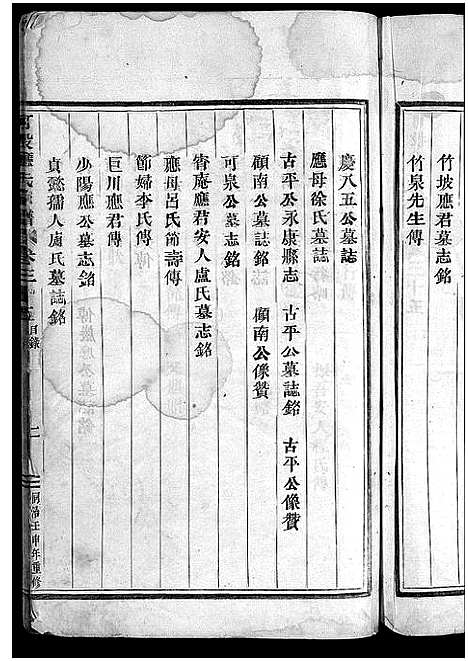 竹坡應君墓志銘
竹泉先生傳
慶八五公墓誌
應母徐氏墓誌
古平公永康縣志 古平公墓誌銘 古平公像贊
頤南公墓誌銘 頤南公像贊
可泉公墓志銘
睿庵應君安人盧氏墓志銘
應母呂氏節壽傳
節婦李氏傳
巨川應君傳
少陽應公墓志銘
貞懿孺人盧氏墓誌銘
應氏宗譜 卷三 目錄 二 同治壬申年重修